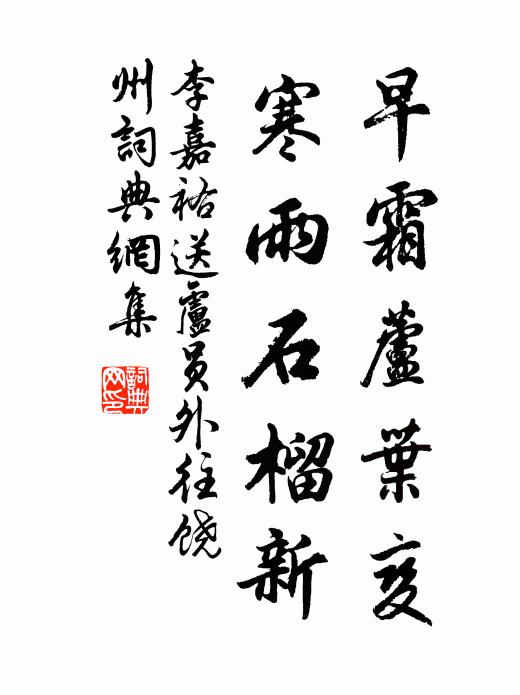 早霜蘆葉变
寒雨石榴新
李嘉祐送盧员外往饶
州詞典網集
詞典网印